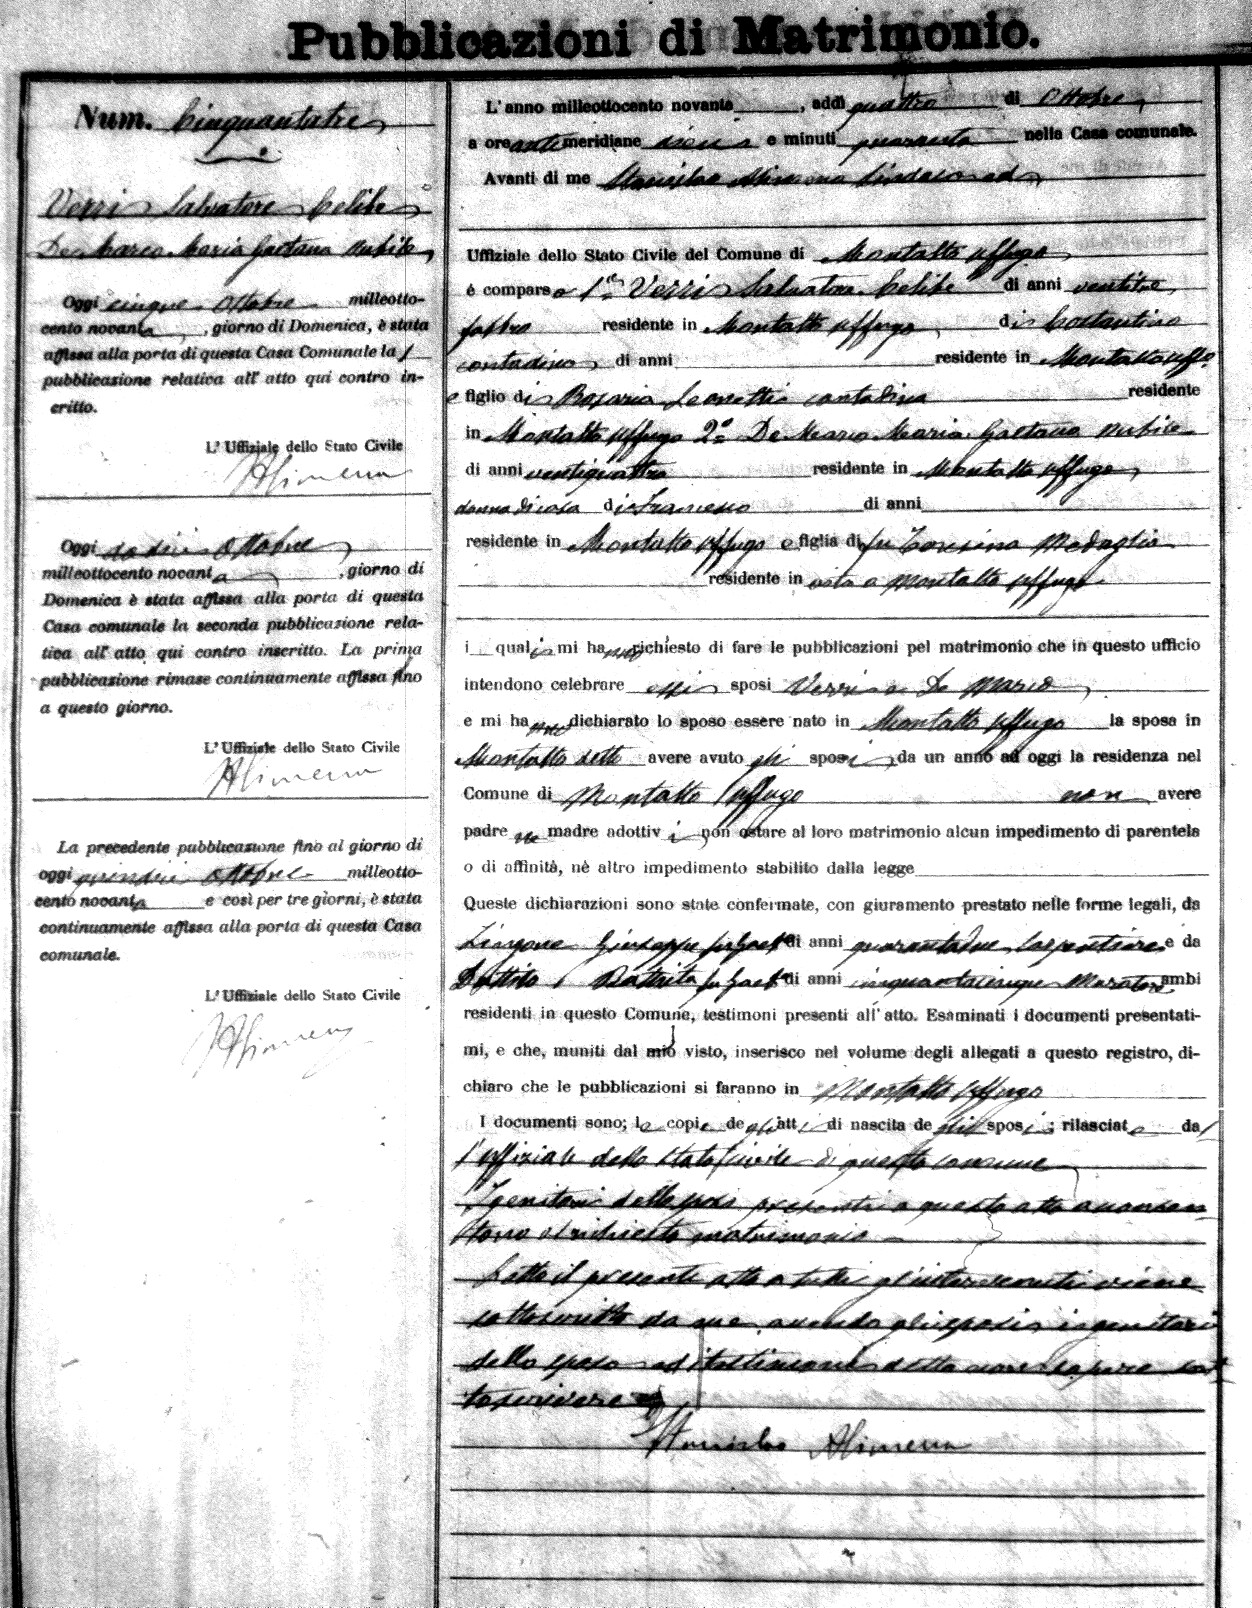 Pubblicazioni di Matrimonio.
Num. Cinquantatre
Verri Salvatore Celibe
De Marco Maria Gaetana nubile
Oggi cinque Ottobre milleotto-
cento novanta, giorno di Domenica, è stata
affissa alla porta di questa Casa Comunale la 1
pubblicazione relativa all' atto qui contro in-
critto.
L' Uffiziale dello Stato Civile
SAlimena
Oggi dodici Ottobre
milleottocento novanta, giorno di
Domenica è stata affissa alla porta di questa
Casa comunale la seconda pubblicazione rela-
tiva all' atto qui contro inscritto. La prima
pubblicazione rimase continuamente affissa fino
a questo giorno.
L' Uffiziale dello Stato Civile
SAlimena
La precedente pubblicazione fino al giorno di
oggi quindici Ottobre milleotto-
cento novanta e così per tre giorni, è stata
continuamente affissa alla porta di questa Casa
comunale.
L' Uffiziale dello Stato Civile
SAlimena
L' anno milleottocento novanta, addì quattro di Ottobre
a ore antimeridiane dieci e minuti quaranta nella Casa comunale.
Avanti di me Stanislao Alimena Sindaco ed
Uffiziale dello Stato Civile del Comune di Montalto Uffugo
è comparso 1° Verri Salvatore Celibe di anni ventitre,
fabbro residente in Montalto Uffugo di Costantino
contadino di anni residente in Montalto Uffo
e figlio di Rosaria Leonetti contadina residente
in Montalto Uffugo 2° De Marco Maria Gaetana nubile
di anni ventiquattro residente in Montalto Uffugo,
donna di casa di Francesco di anni
residente in Montalto Uffugo e figlia di fu Teresina Medaglia
residente in vita a Montalto Uffugo
i quali mi hanno richiesto di fare le pubblicazioni pel matrimonio che in questo ufficio
intendono celebrare essi sposi Verri e De Marco
e mi hanno dichiarato lo sposo essere nato in Montalto Uffugo la sposa in
Montalto detto avere avuto gli sposi da un anno ad oggi la residenza nel
Comune di Montalto Uffugo non avere
padre ne madre adottivi, non ostare al loro matrimonio alcun impedimento di parentela
o di affinità, nè altro impedimento stabilito dalla legge
Queste dichiarazioni sono state confermate, con giuramento prestato nelle forme legali, da
Giuseppe fu di anni quarantadue Carpentiere e da
Battista fu di anni cinquantacinque Muratore ambi
residenti in questo Comune, testimoni presenti all' atto. Esaminati i documenti presentati-
mi, e che, muniti dal mio visto, inserisco nel volume degli allegati a questo registro, di-
chiaro che le pubblicazioni si faranno in Montalto Uffugo
I documenti sono; le copie degli atti di nascita degli sposi; rilasciate dal
l'uffiziale dello Stato Civile di questo comune
I genitori dello sposo presenti a questo atto acconsen
tono al richiesto matrimonio
Letto il presente atto a tutti gl'intervenuti viene
sottoscritto da me avendo gli sposi i genitori
dello sposo ed i testimoni detto non sapere sot
toscrivere
Stanislao Alimena